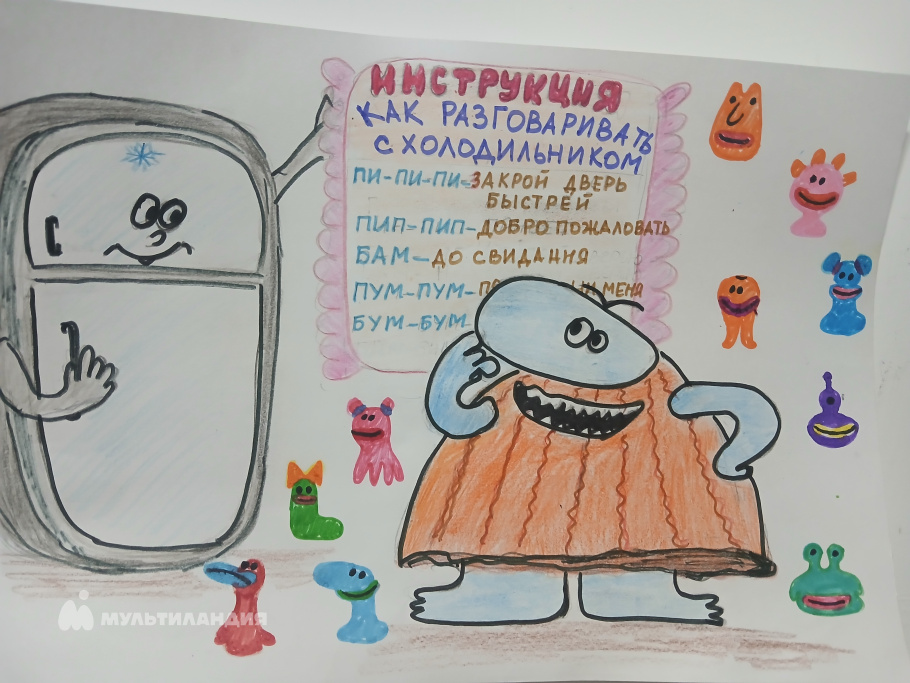 ИНСТРУКЦИЯ
КАК РАЗГОВАРИВАТЬ
С ХОЛОДИЛЬНИКОМ
ПИ-ПИ-ПИ-ЗАКРОЙ ДВЕРЬ
БЫСТРЕЙ
ПИП-ПИП-ДОБРО ПОЖАЛОВАТЬ
БАМ-ДО СВИДАНИЯ
ПУМ-ПУМ- МЕНЯ
БУМ-БУМ
МУЛЬТИЛАНДИЯ